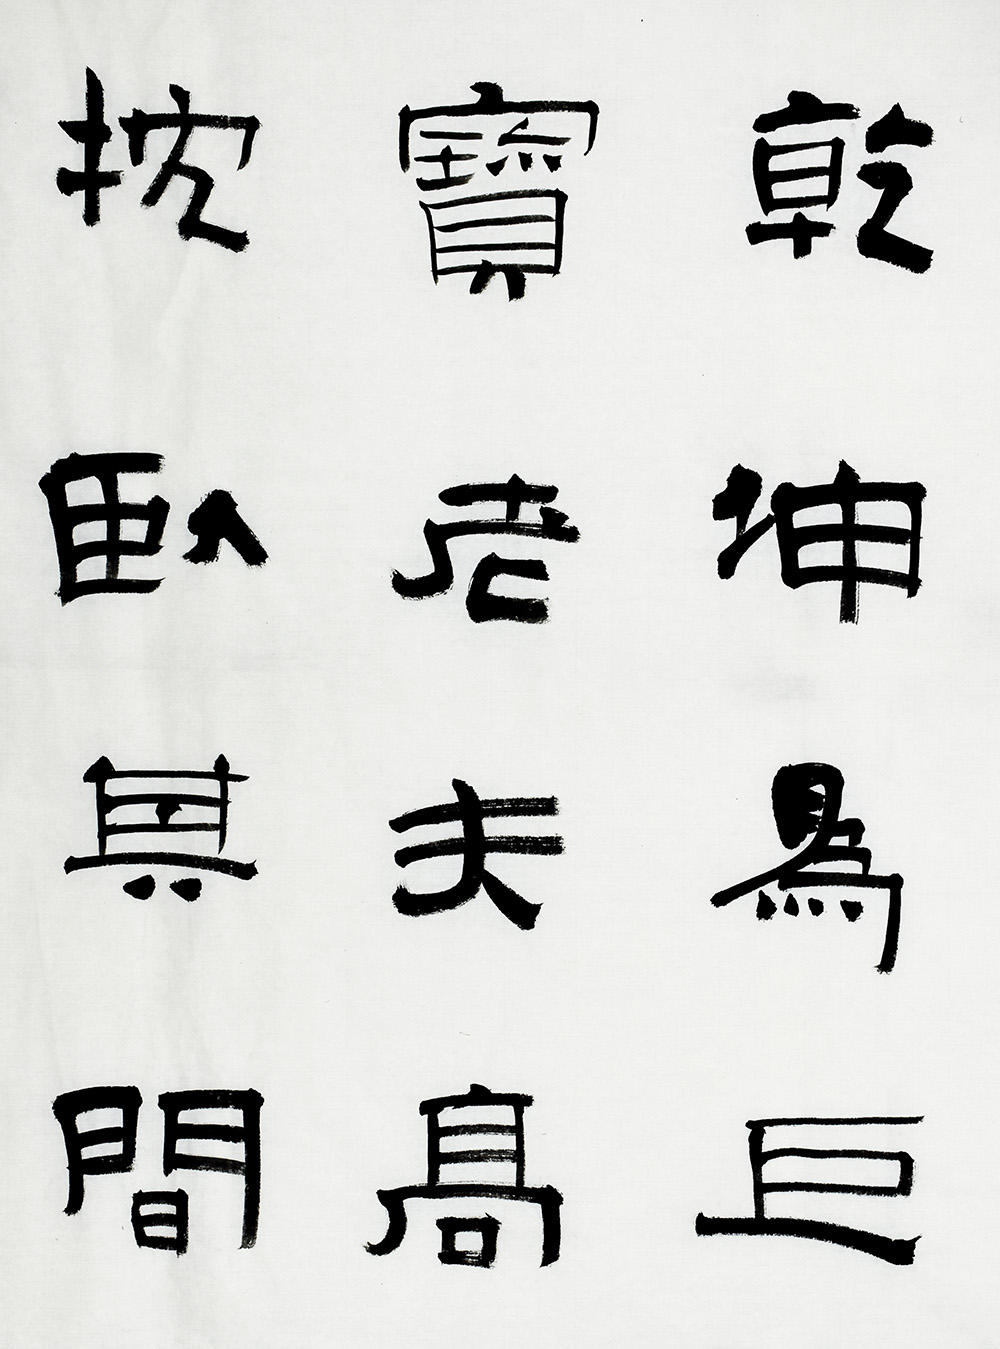 乾坤為巨
寶老夫高
枕臥其間